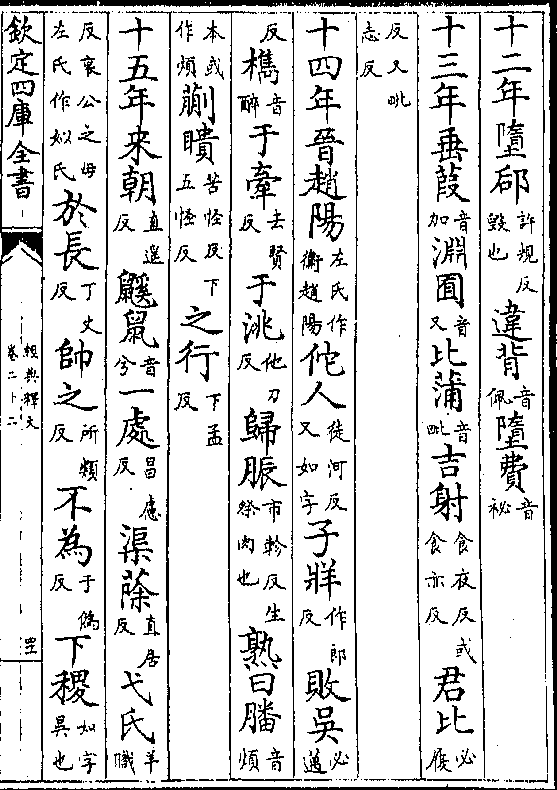 十二年墮郈許規反毀也違背音佩墮費音祕
十三年垂葭音加淵囿音又比蒲音毗吉射食夜反或食亦反君比必履
反又毗志反
十四年晉趙陽左氏作衛趙陽佗人徒河反又如字子牂作郎反敗吳必邁
反檇音醉于牽去賢反于洮他刀反歸脤市軫反生祭肉也熟曰膰音煩
本或作煩蒯聵苦怪反下五怪反之行下孟反
十五年来朝直遥反鼷鼠音兮一處昌慮反渠蒢直居反弋氏羊職
反哀公之母左氏作姒氏於長丁丈反帥之所類反不為于偽反下稷如字昃也
欽定四庫全書
經典釋文
卷二十二